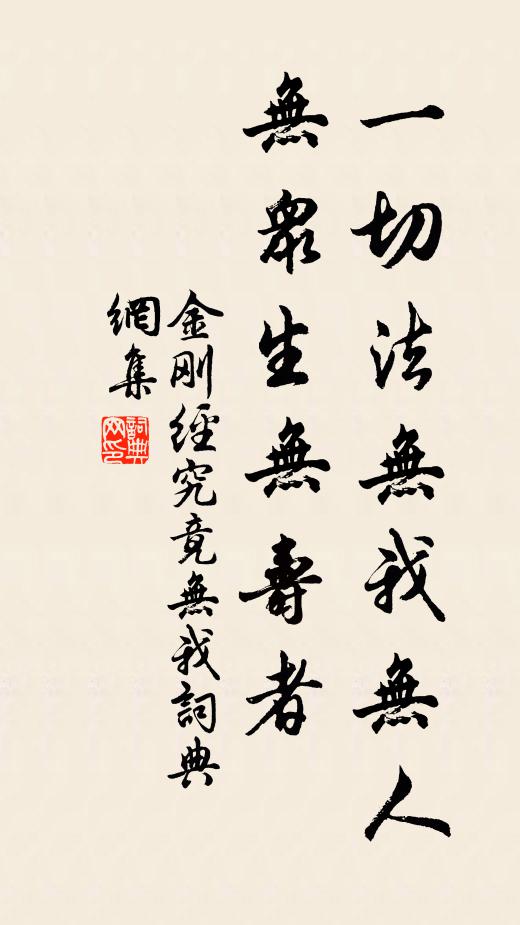 一切法無我無人
無眾生無壽者
金剛經究竟無我詞典
網集
詞典
网印